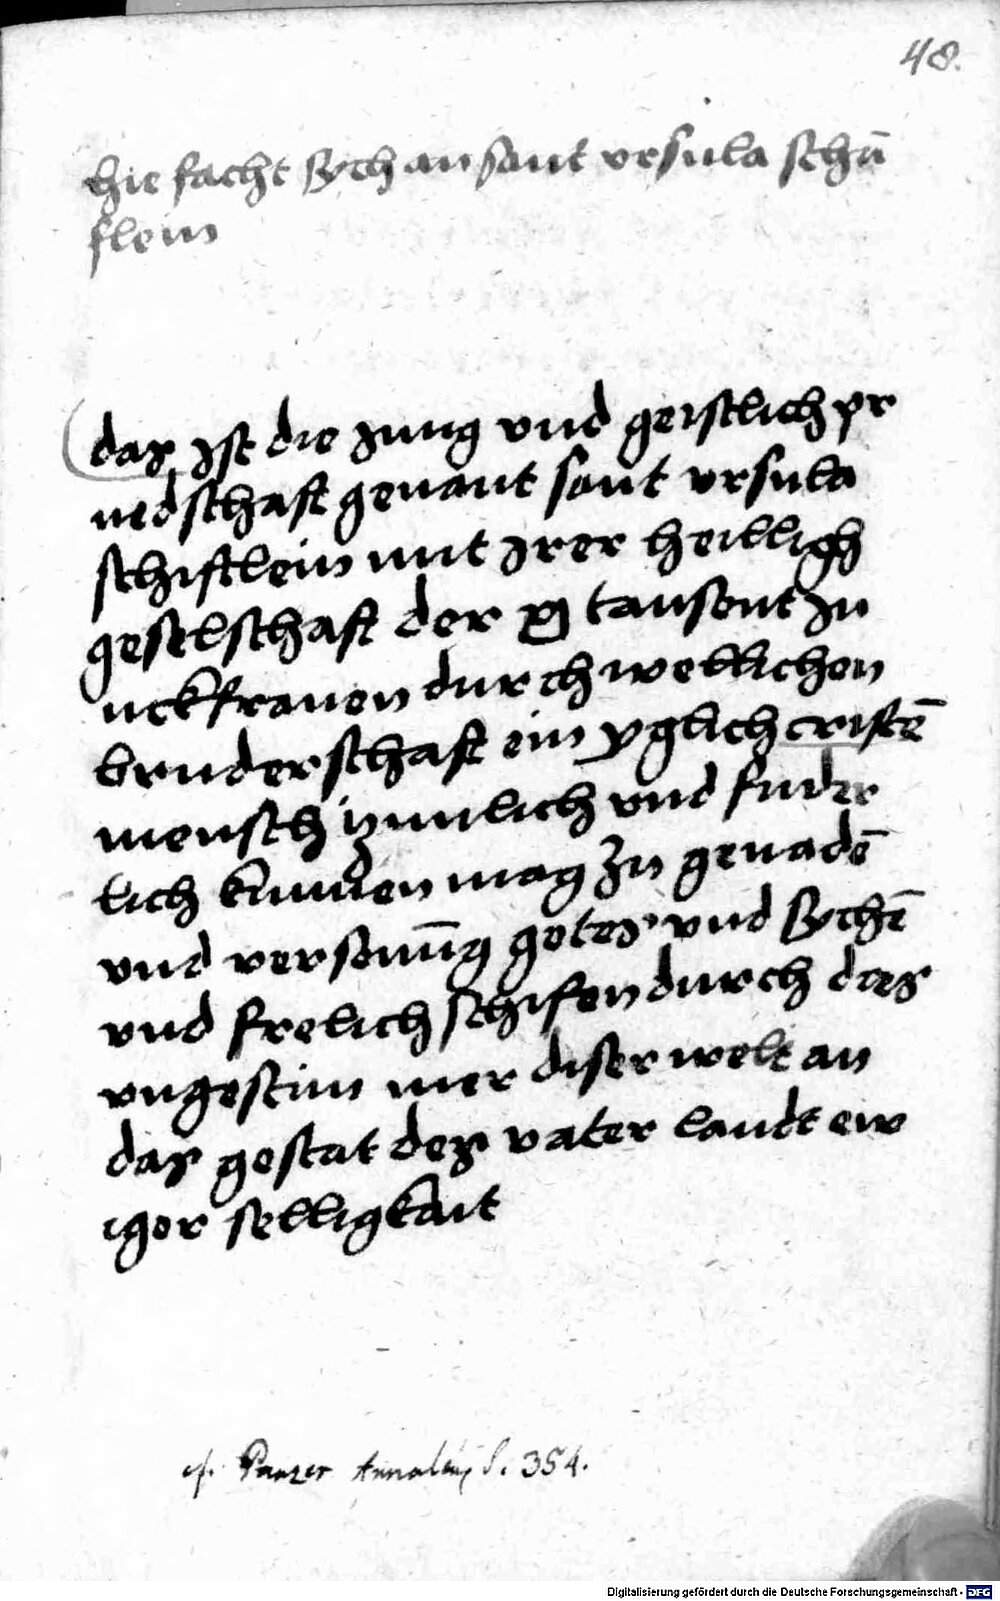 48.
hie facht sych an sant vrsula schū
flein
das ist die jung vnd geistlich pr
uedschaft genant sant vrsula
schiftlein mit irer heillig
geselschaft der xj tausent ju
nckfrauen durch wellichen
bruderschaft ein yglich cristē
mensch zimlich vnd fruder
lich kumen mag zu genadē
vnd versonūg gotes vnd sychē
vnd frelich schifen durch das
vngestim mer diser welt an
das gestat des vater landt ew
iger selligkait
cf. Panzer Annalen S. 354.
Digitalisierung gefördert durch die Deutsche Forschungsgemeinschaft - DFG